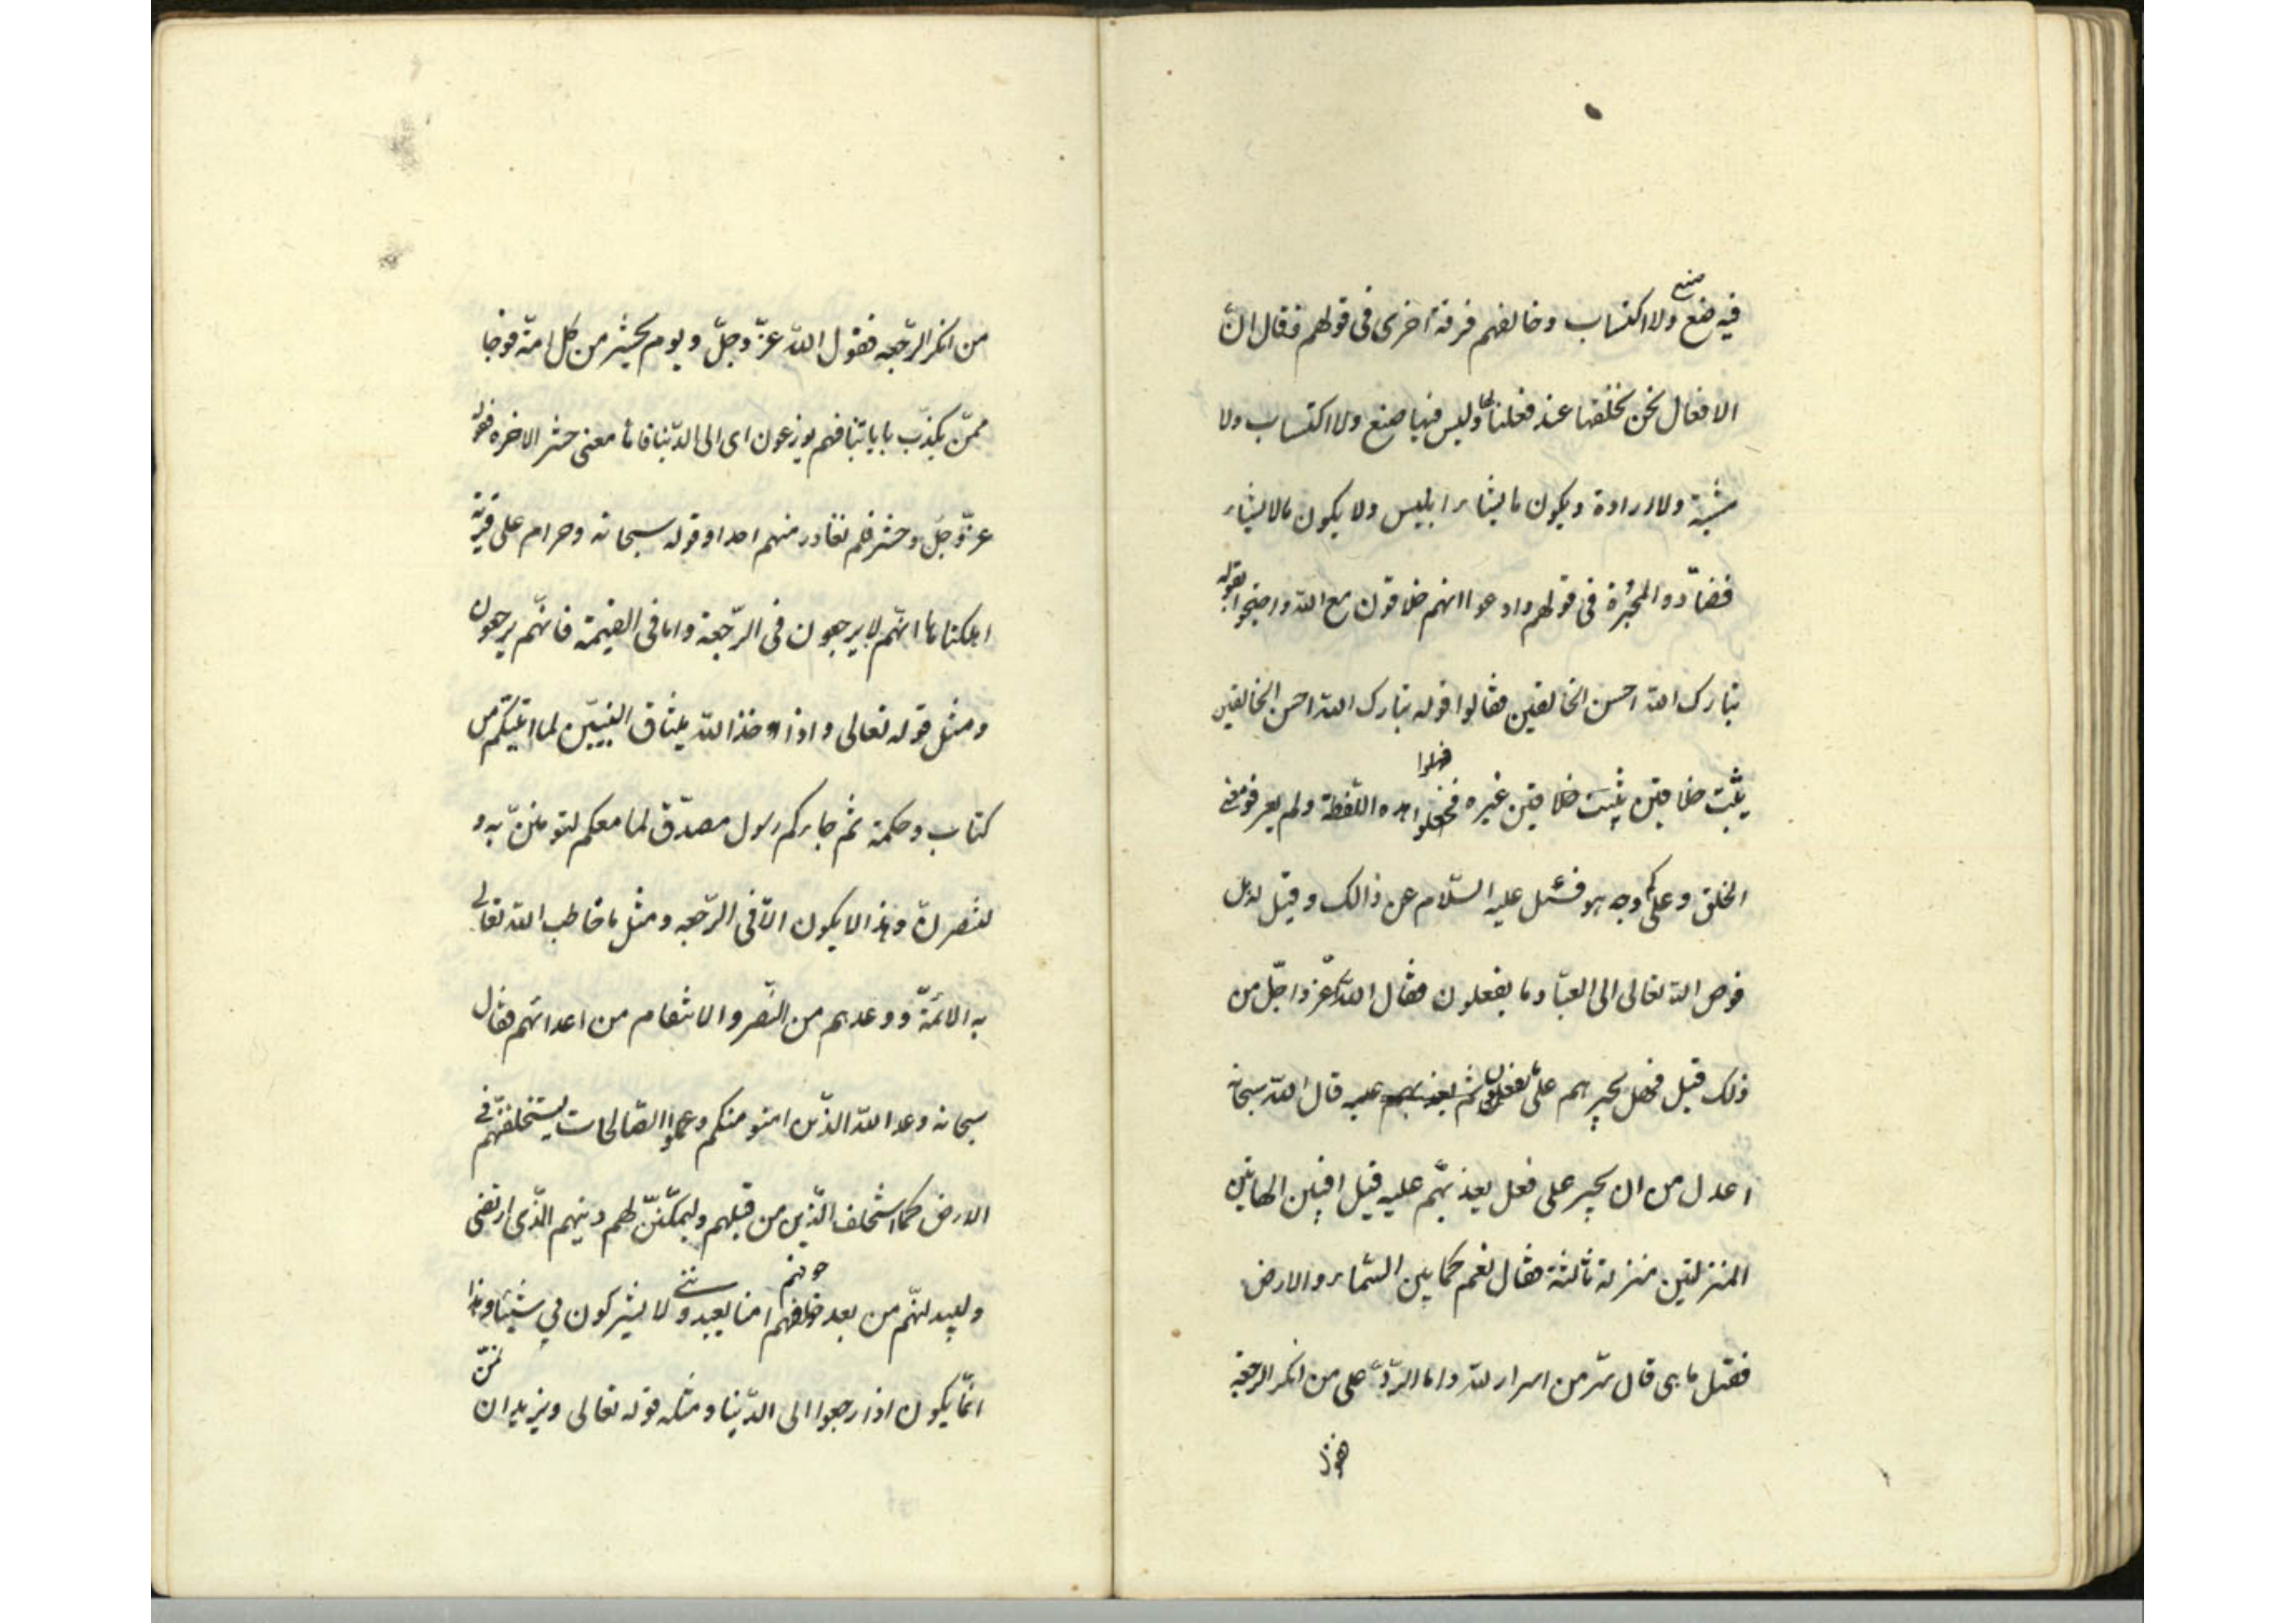 صنع
فيه ضع ولا اكتساب وخالفهم فرقة اخرى فى قولهم فقال انّ
الافعال نحن نخلقها عند فعلنا لها وليس فيها صنع ولا اكتساب ولا
مشية ولا ارادة ويكون ما يشاء ابليس ولا يكون ما لا يشاء
فضادّوا المجبرة فى قولهم وادعوا انهم خلاقون مع الله واحتجوا بقوله
تبارك الله احسن الخالقين فقالوا قوله تبارك الله احسن الخالقين
فجهلوا
يثبت خلاقين يثبت خلاقين غيره فجعلوا هذه اللّفظة ولم يعرفوا معنى
الخلق وعلى كم وجه هو فسئل عليه السّلام عن ذالك وقيل له هل
فوض الله تعالى الى العباد ما يفعلون فقال الله اعز واجلّ من
ذلك قيل فهل يجبرهم على ما يفعلون ثم يعذبهم عليه قال الله سبحانه
اعدل من ان يجبر على فعل يعذبهّم عليه قيل افبين الهاتين
المنزلتين منزلة ثالثة فقال نعم كما بين السّماء والارض
فقيل ما هى قال سرّ من اسرار الله واما الردّ على من انكر الرجعة
فقول
من انكر الرّجعه فقول الله عزّ وجلّ ويوم نحشر من كل امّة فوجا
ممّن يكذّب باياتنا فهم يوزعون اى الى الدّنيا فاما معنى حشر الاخره فقوله
عزّ وجلّ وحشر فلم نغادر منهم احدا وقوله سبحانه وحرام على قرية
اهلكناها انهّم لا يرجعون فى الرّجعة واما فى القيمة فانهّم يرجعون
ومثل قوله تعالى واذ اخذ الله ميثاق النبيّين لما اتيتكم من
كتاب وحكمة ثم جاءكم رسول مصدّق لما معكم لتؤمننّ به و
لتنصرنّه وهذا لا يكون الّا فى الرّجعه ومثل ما خاطب الله تعالى
به الائمّة ووعدهم من النّصر والانتقام من اعدائهم فقال
سبحانه وعد الله الذّين امنو منكم وعملوا الصّالحات ليستخلفنّهم فى
الارض كما استخلف الذّين من قبلهم وليمكّننّ لهم دينهم الذّى ارتضى
خوفهم ننى
وليبدلنّهم من بعد خلفهم امنا يعبدو لا يشركون بي شيئا وهذا
انمّا يكون اذا رجعوا الى الدّنيا ومثله قوله تعالى ونريد ان
نمنّ